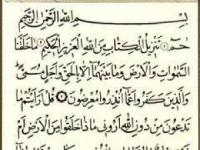 بِسْمِ اللَّهِ الرَّحْمَٰنِ الرَّحِيمِ
حمٓ ۝ تَنزِيلُ الْكِتَابِ مِنَ اللَّهِ الْعَزِيزِ الْحَكِيمِ ۝ مَا خَلَقْنَا
السَّمَاوَاتِ وَالْأَرْضَ وَمَا بَيْنَهُمَا إِلَّا بِالْحَقِّ وَأَجَلٍ مُّسَمًّى
وَالَّذِينَ كَفَرُوا عَمَّا أُنذِرُوا مُعْرِضُونَ ۝ قُلْ أَرَأَيْتُم مَّا
تَدْعُونَ مِن دُونِ اللَّهِ أَرُونِي مَاذَا خَلَقُوا مِنَ الْأَرْضِ أَمْ